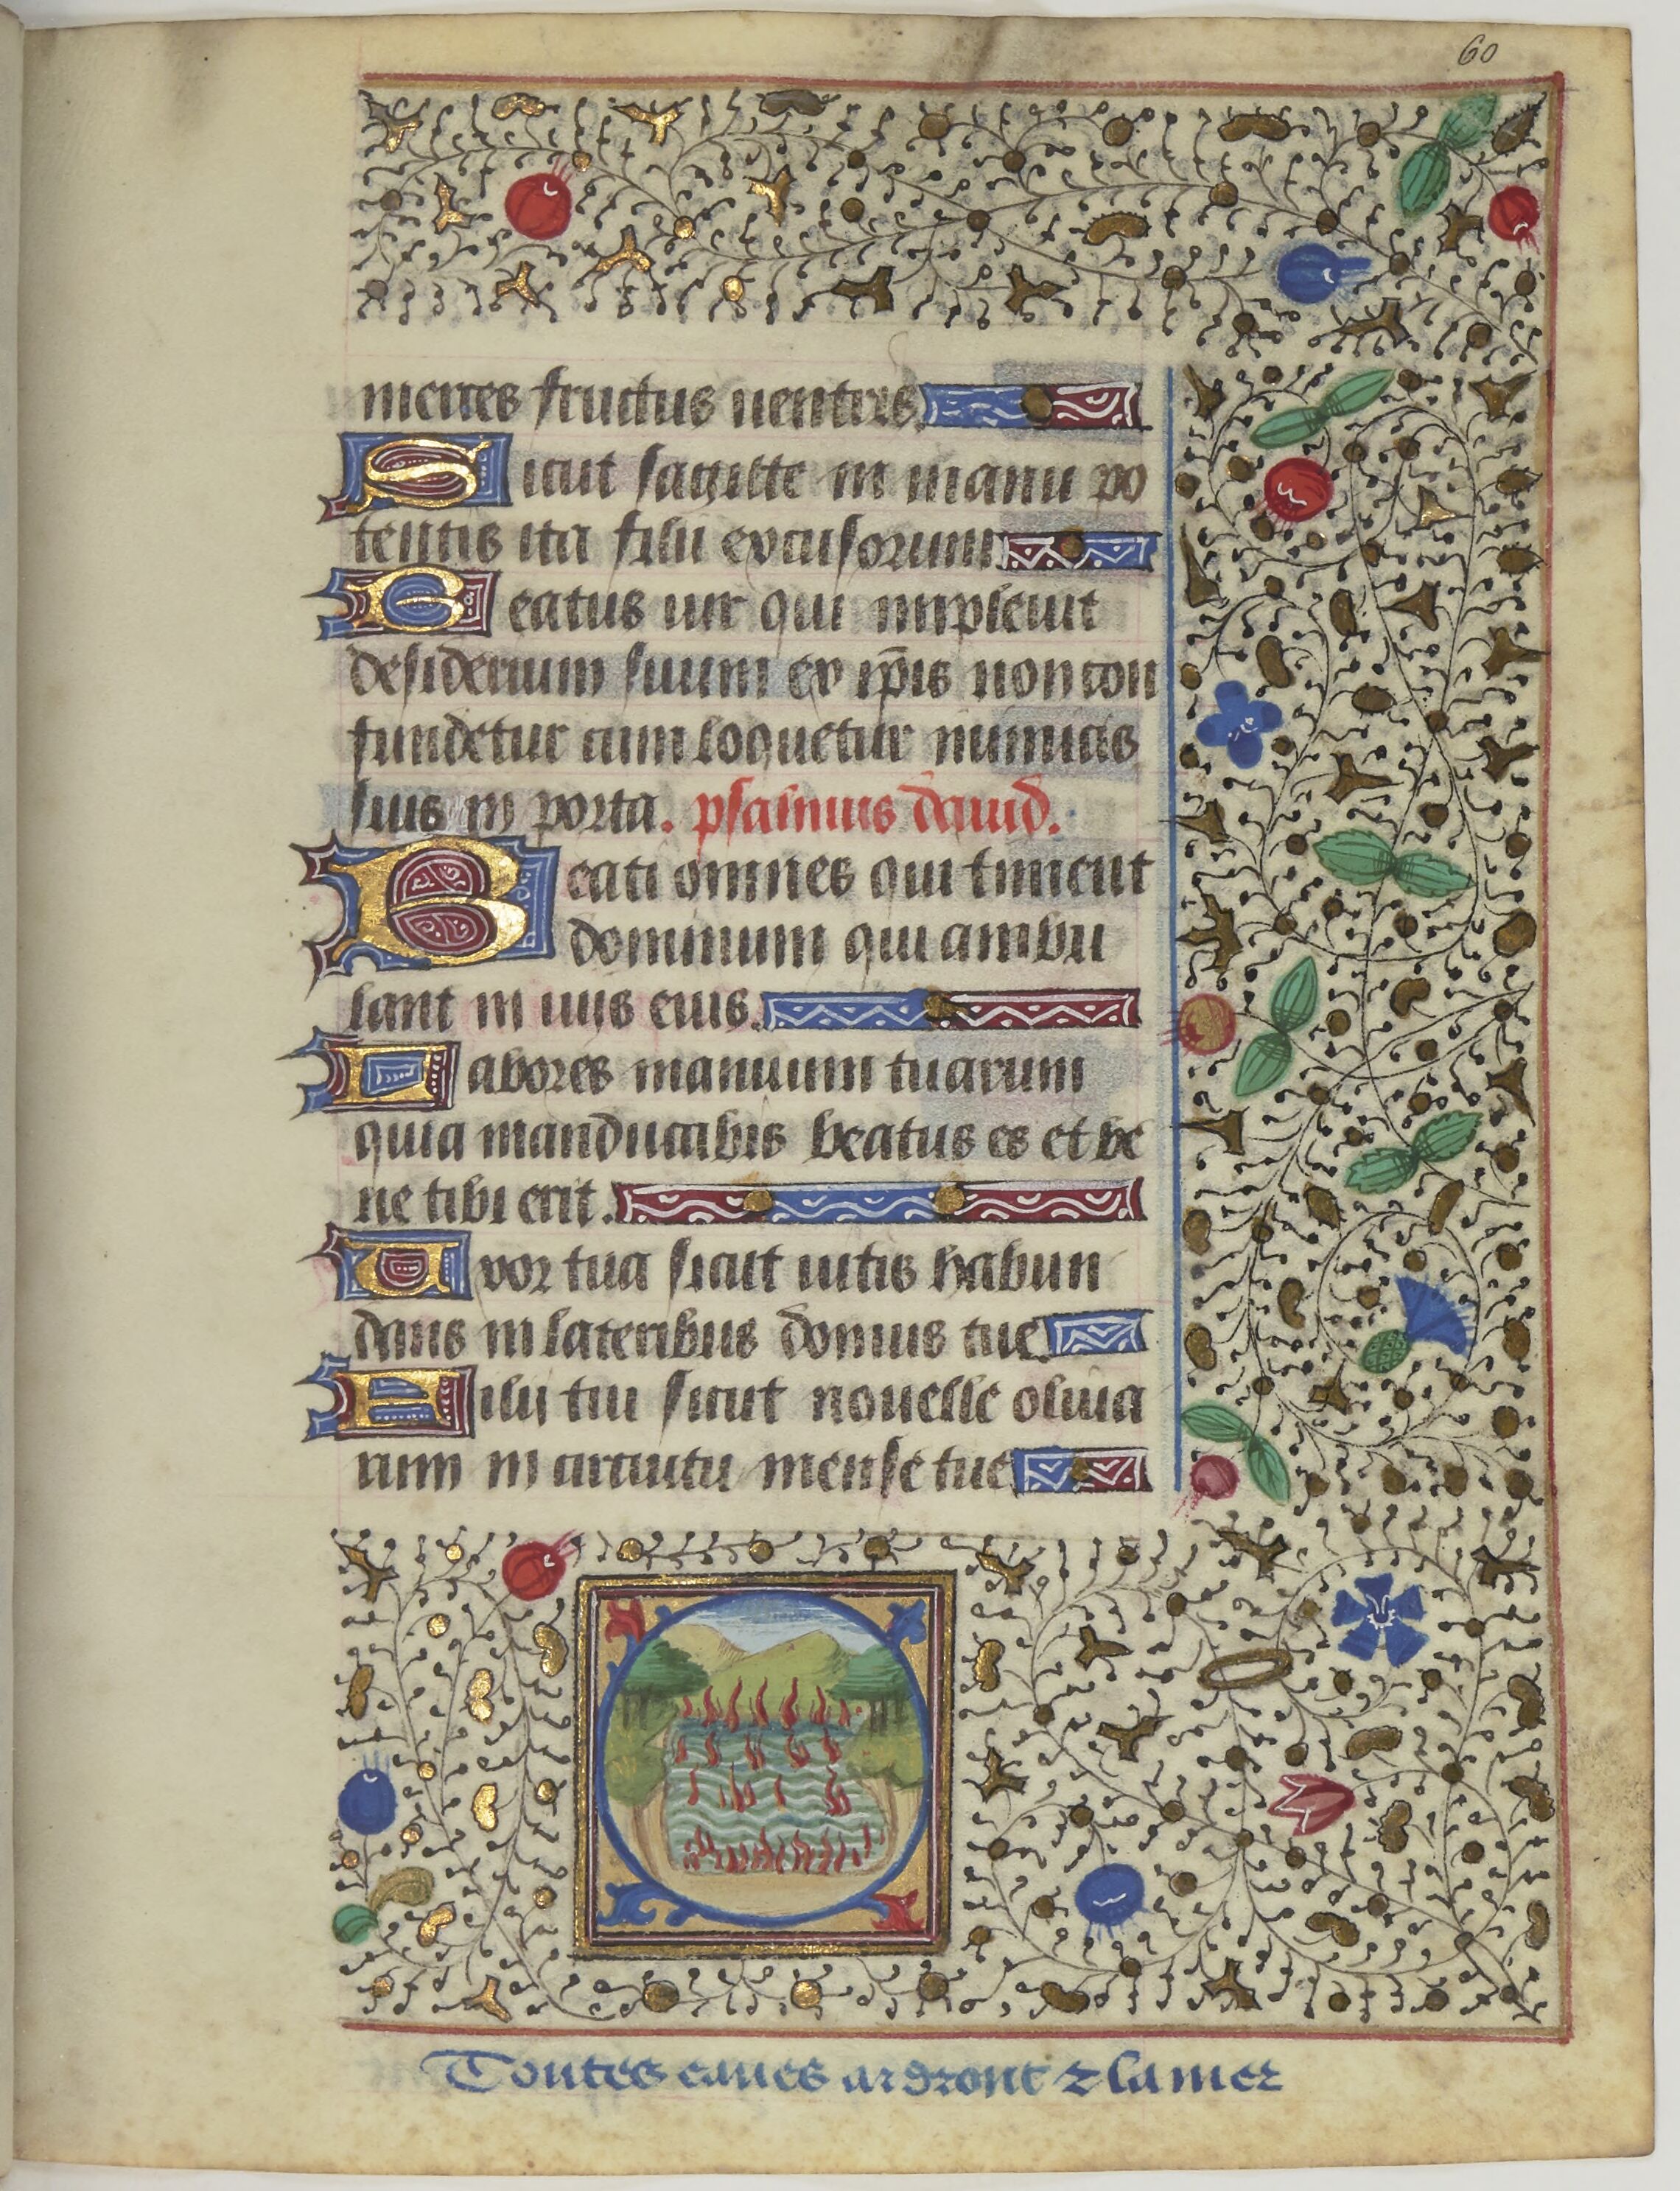 60
merces fructus uentris.
Sicut sagitte in manu po
tentis ita filii excusorum
Beatus uir qui impleuit
desiderium suum ex ip̄is non con
fundetur cum loquetur inimicis
suis in porta. psalmus dauid.
Beati omnes qui timent
dominum qui ambu
lant in uiis eius.
Labores manuum tuarum
quia manducabis beatus es et be
ne tibi erit.
Uxor tua sicut uitis habun
dans in lateribus domus tue
Filii tui sicut nouelle oliua
rum in circuitu mense tue
Toutes eaues ardront ⁊ la mer